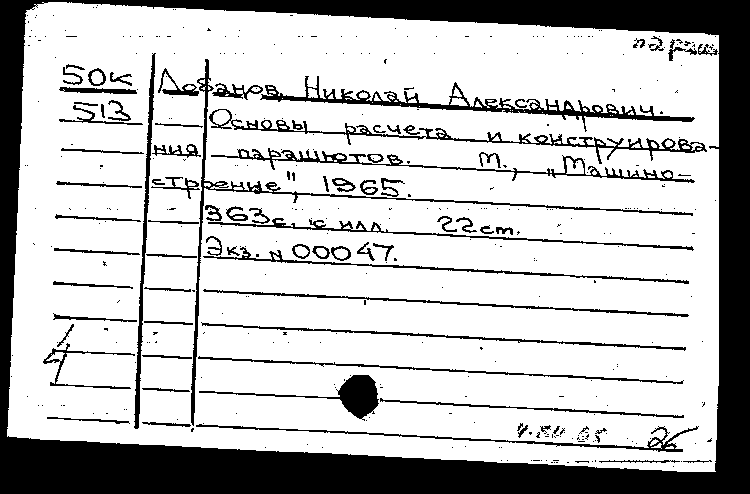 параш
50к Лобанов, Николай Александрович.
513 Основы расчета и конструирова-
ния парашютов. М., „Машино-
строение", 1965.
363с. с илл. 22 cm.
Экз. N 00047.
4
26